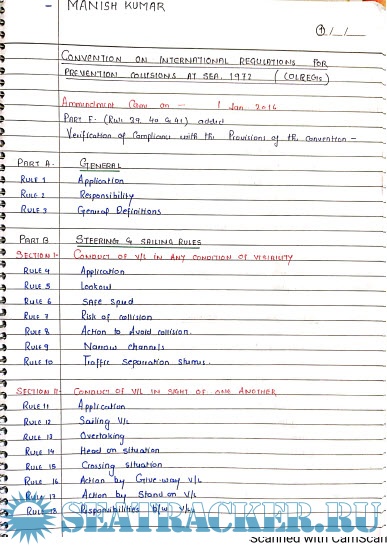 - MANISH KUMAR
① / /
CONVENTION ON INTERNATIONAL REGULATIONS FOR
PREVENTION COLLISIONS AT SEA, 1972 (COLREGIS)
Ammendment Came on - 1 Jan 2016
PART F. (Rule 39, 40 & 41) added
Verification of Compliance with the Provisions of the convention -
PART A. GENERAL
RULE 1 Application
RULE 2 Responsibility
RULE 3 General Definitions
PART B STEERING & SAILING RULES
SECTION I- CONDUCT OF V/L IN ANY CONDITION OF VISIBILITY
RULE 4 Application
RULE 5 Lookout
RULE 6 safe speed
RULE 7 Risk of collision
RULE 8 Action to Avoid collision.
RULE 9 Narrow channels
RULE 10 Traffic separation
SECTION II- CONDUCT OF V/L IN SIGHT OF ONE ANOTHER
RULE 11 Application
RULE 12 Sailing V/L
RULE 13 Overtaking
RULE 14 Head on situation
RULE 15 Crossing situation
RULE 16 Action by Give-way V/L
RULE 17 Action by Stand on V/L
RULE 18 Responsibilities b/w V/L
SEATRACKER.RU
Scanned with CamScan